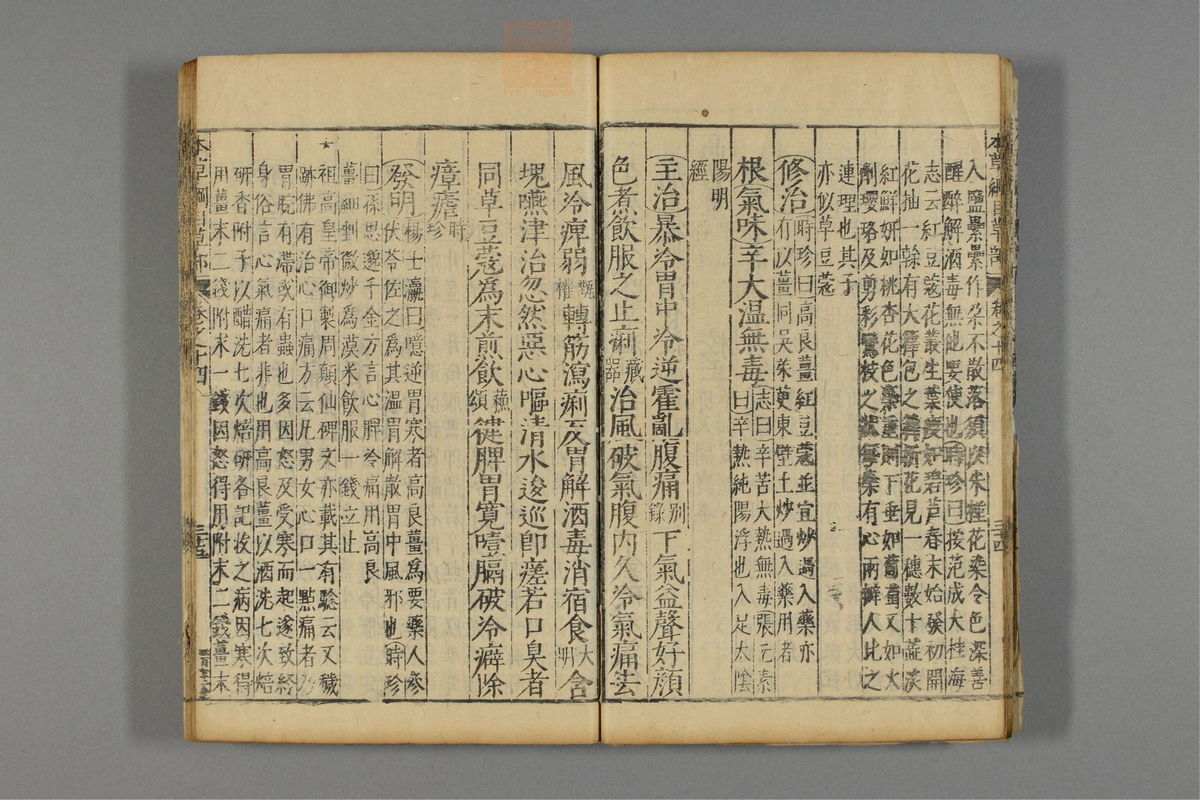 入鹽纍纍作朶不散落須以朱槿花染令色深善
醒醉解酒毒無他要使也時珍曰按范成大桂海
志云紅豆蔻花叢生葉瘦如碧蘆春末始發初開
花抽一幹有大籜包之籜拆花見一穗數十蕊淡
紅鮮妍如桃杏花色蕊重則下垂如葡萄又如火
齊瓔珞及剪彩鸞枝之狀每蕊有心兩瓣人比之
連理也其子
亦似草豆蔻
修治時珍曰高良薑紅豆蔻並宜炒過入藥亦
有以薑同吳茱萸東壁土炒過入藥用者
根氣味辛大温無毒志曰辛苦大熱無毒張元素
曰辛熱純陽浮也入足太陰
陽明
經
主治暴冷胃中冷逆霍亂腹痛別錄下氣益聲好顔
色煮飲服之止痢藏器治風破氣腹内久冷氣痛去
風冷痺弱甄權轉筋瀉痢反胃解酒毒消宿食大明含
塊嚥津治忽然惡心嘔清水逡巡即瘥若口臭者
同草豆蔻為末煎飲蘇頌健脾胃寬噎膈破冷癖除
瘴瘧時珍
發明楊士瀛曰噫逆胃寒者高良薑為要藥人參
茯苓佐之為其温胃解散胃中風邪也時珍
曰孫思邈千金方言心脾冷痛用高良
薑細剉微炒為漠米飲服一錢立止
祖高皇帝御製周顛仙碑文亦載其有驗云又穢
跡佛有治心口痛方云凡男女心口一點痛者乃
胃脘有滯或有蟲也多因怒及受寒而起遂致終
身俗言心氣痛者非也用高良薑以酒洗七次焙
研香附子以醋洗七次焙研各記收之病因寒得
用薑末二錢附末一錢因怒得用附末二錢薑末